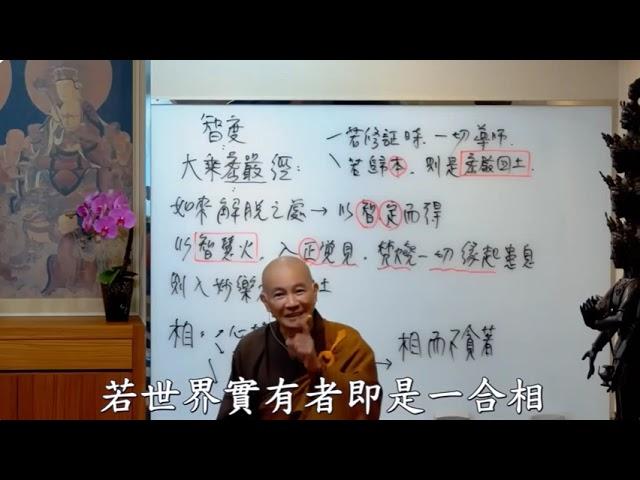 智度
若修証時, 一切導師.
大乘密嚴經:
若歸本, 則是密嚴国土
如來解脫之處→以智定而得
以智慧火, 入正覺見, 焚燒一切緣起
則入妙樂 土
相: 心 → 相而不貪著
若世界實有者即是一合相